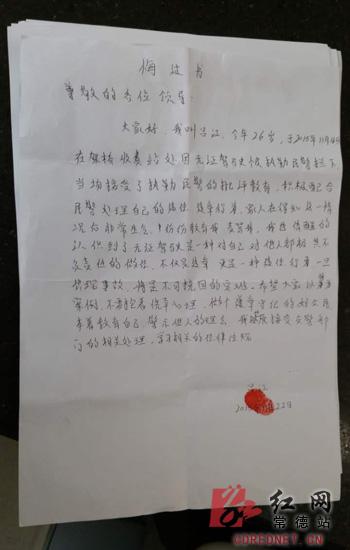 悔过书
尊敬的各位领导:
大家好,我叫吕 ,今年26岁,于2015年11月4日
在驾桥收费站处因无证驾驶被执勤民警拦下
当场接受了执勤民警的批评教育,积极配合
民警处理自己的违法违章行为,家人在得知这一情
况后非常生气,教育我,我也清醒的
认识到了无证驾驶是一种对自己对他人都极其不
负责任的做法,不仅违章更是一种违法行为一旦
出现事故,将是不可挽回的灾难,希望大家以我为
案例,不要抱着侥幸心理,做个遵章守纪的好公民
本着教育自己,警示他人的理念,我 接受交警部
门的相关处理,学习相关的法律法规
22日
红网
常德站
CDREDNET.CN